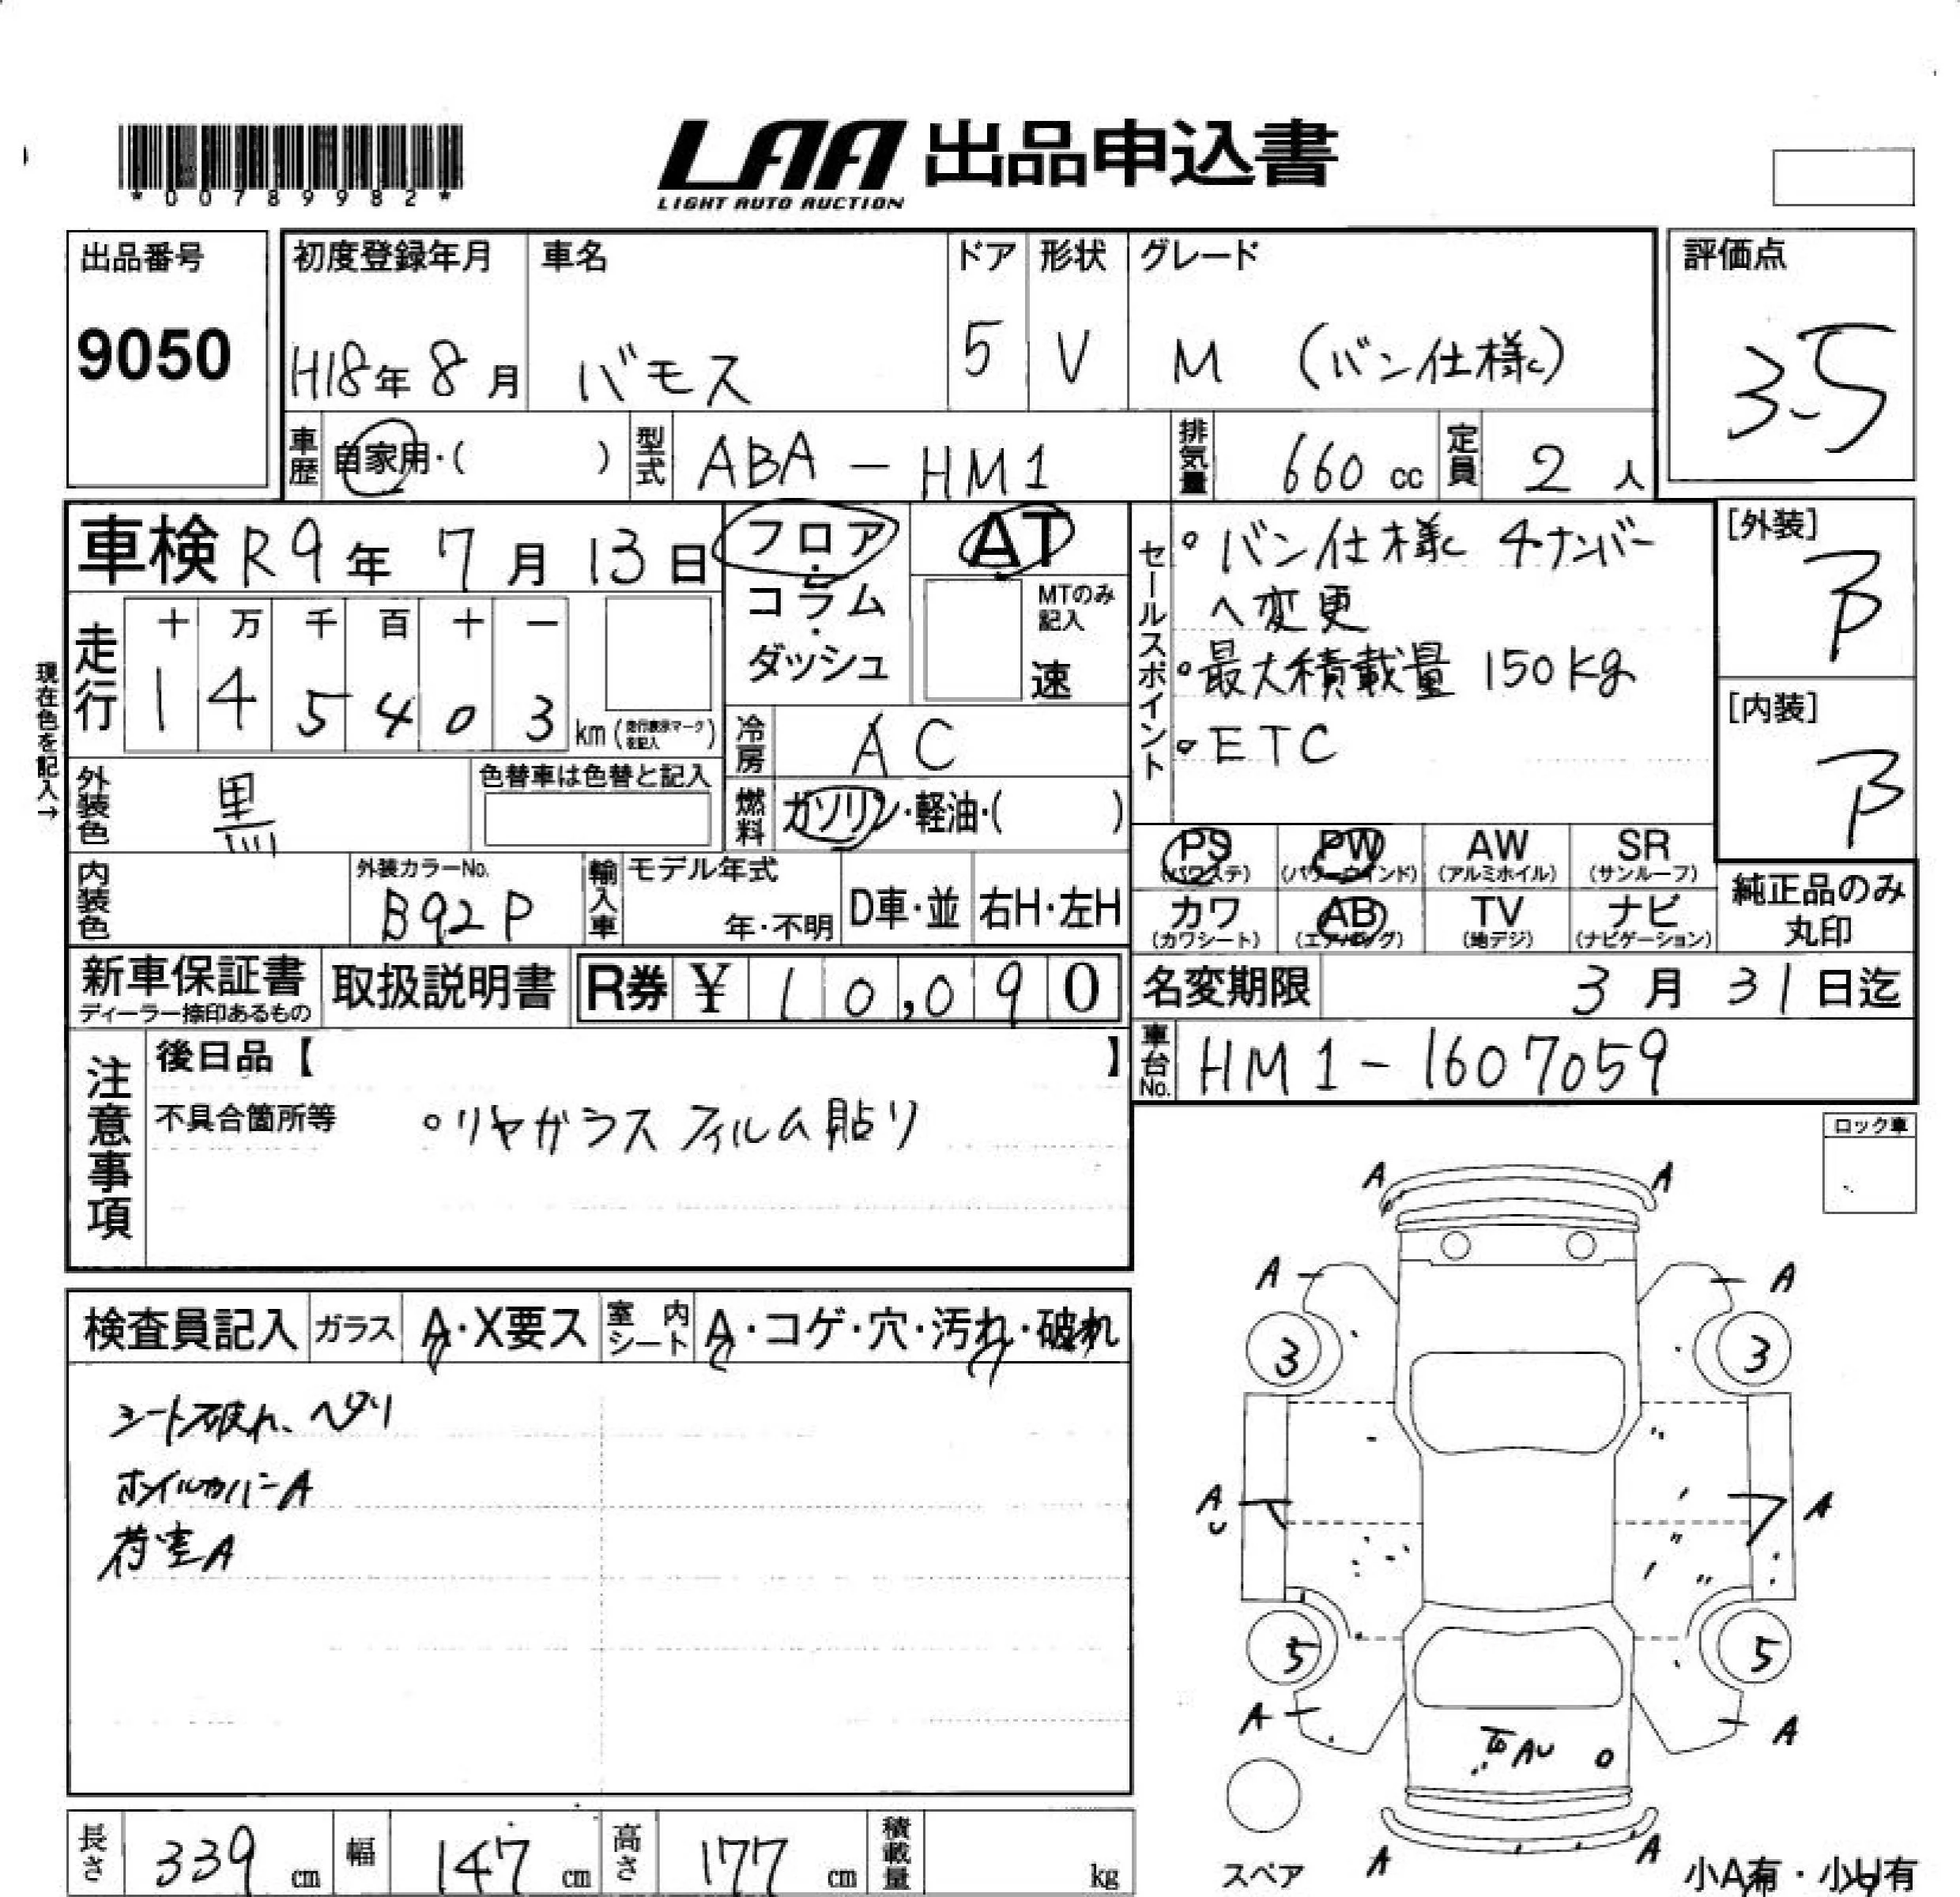 *00789982*
LAA 出品申込書
LIGHT AUTO AUCTION
出品番号
9050
初度登録年月
H18年 8月
車名
バモス
ドア
5
形状
V
グレード
M (バン仕様)
評価点
3.5
車歴 自家用・( )
型式 ABA-HM1
排気量 660 cc
定員 2 人
車検 R9年 7月 13日
フロア
・
コラム
・
ダッシュ
AT
MTのみ記入
速
セールスポイント
・バン仕様 4ナンバー
へ変更
・最大積載量 150kg
・ETC
[外装]
B
[内装]
B
現在色を記入→
走行
十 万 千 百 十 一
1 4 5 4 0 3 km (走行表示マークを記入)
冷房 AC
外装色 黒
色替車は色替と記入
燃料 ガソリン・軽油・( )
PS (パワステ)
PW (パワーウインド)
AW (アルミホイル)
SR (サンルーフ)
カワ (カワシート)
AB (エアバッグ)
TV (地デジ)
ナビ (ナビゲーション)
純正品のみ
丸印
内装色
外装カラーNo.
B92P
輸入車
モデル年式
年・不明
D車・並
右H・左H
新車保証書
ディーラー捺印あるもの
取扱説明書
R券 ¥ 10,090
名変期限 3月 31日迄
車台No. HM1-1607059
注意事項
後日品【 】
不具合箇所等 ・リヤガラス フィルム貼り
ロック車
検査員記入
ガラス A・X要ス
室内シート A・コゲ・穴・汚れ・破れ
シート破れ、ヘタリ
ホイルカバーA
荷室A
A A
A A
3 3
A A
5 5
A A
AU
A A
スペア
小A有・小U有
長さ 339 cm
幅 147 cm
高さ 177 cm
積載量 kg